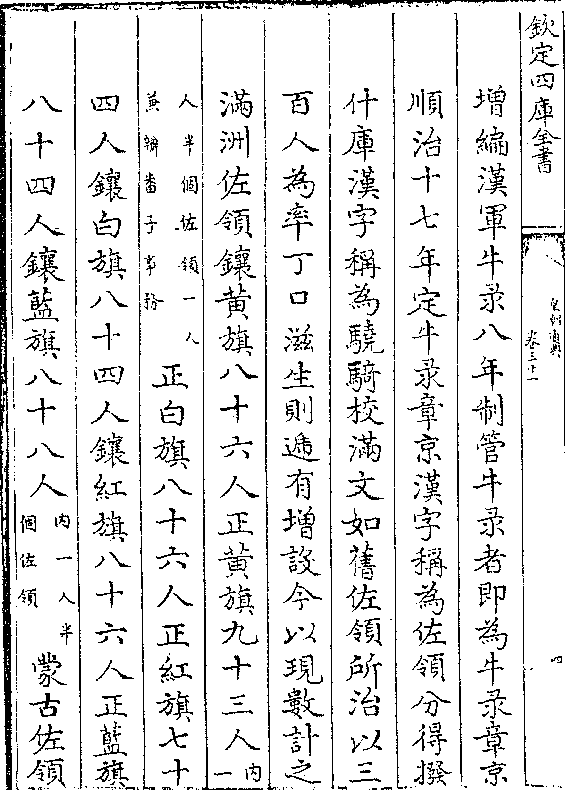 欽定四庫全書
皇朝通典
卷三十一
四
增編漢軍牛录八年制管牛录者即為牛录章京
順治十七年定牛录章京漢字稱為佐領分得撥
什庫漢字稱為驍騎校滿文如舊佐領所治以三
百人為率丁口滋生則遞有增設今以現數計之
滿洲佐領鑲黃旗八十六人正黃旗九十三人内一
人半個佐領一人兼辦畨子事務正白旗八十六人正紅旗七十
四人鑲白旗八十四人鑲紅旗八十六人正藍旗
八十四人鑲藍旗八十八人内一人半個佐領蒙古佐領